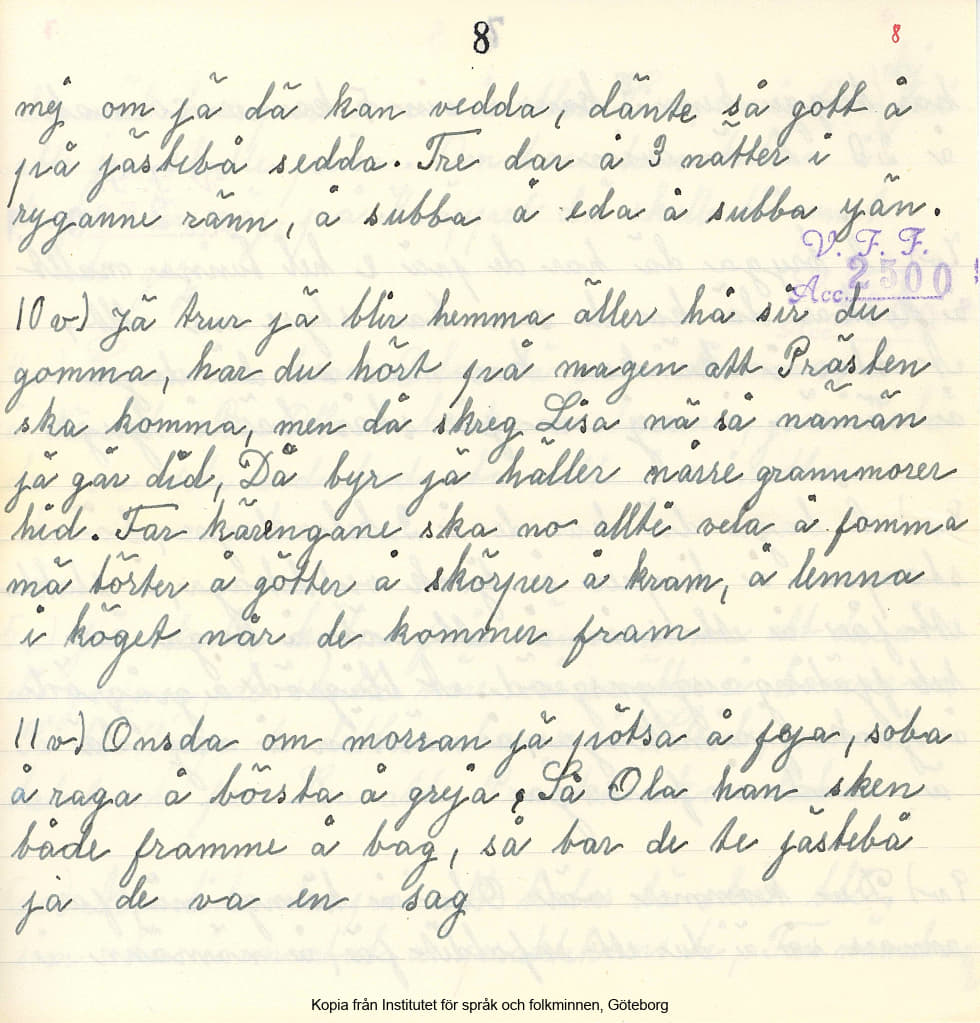 8 8
mej om jä dä kan vedda, dänte så gott å
på jästebå sedda. Tre dar å 3 nätter i
ryganne ränn, å subba å eda å subba yän.
V. F. F.
Acc. 2500
10 v) Jä trur jä blir hemma äller hå sir du
gomma, har du hört på magen att Prästen
ska komma, men då skreg Lisa nä så nämän
jä går did, Då byr jä häller nårre grannmorer
hid. Far käreng­ane ska no allti vela å fomma
mä törter å götter å skörper å kram, å lemna
i köget når de kommer fram
11 v) Onsda om morran jä pötsa å feja, soba
å raga å börsta å greja, Så Ola han sken
både framme å bag, så bar de te jästebå
ja de va en sag
Kopia från Institutet för språk och folkminnen, Göteborg